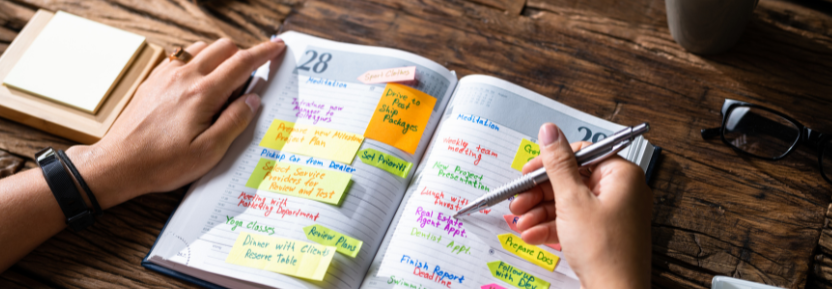 28
Meditation
Sport Classes
Introduce new
Manager to
Colleagues
Drive to
Post
Ship
Packages
Prepare new Marketing
Project Plan
Set Priority
Pickup Car from Dealer
Select Service
Providers for
Review and Test
Meeting with
Marketing Department
Yoga Classes
Review Plans
Dinner with Client
Reserve Table
Meditation
Weekly team
meeting
New Project
Presentation
Lunch with
Real Estate
Agent Appt.
Dentist Appt.
Prepare Docs
Finish Report
Deadline
Followup
with Dev
Swimming